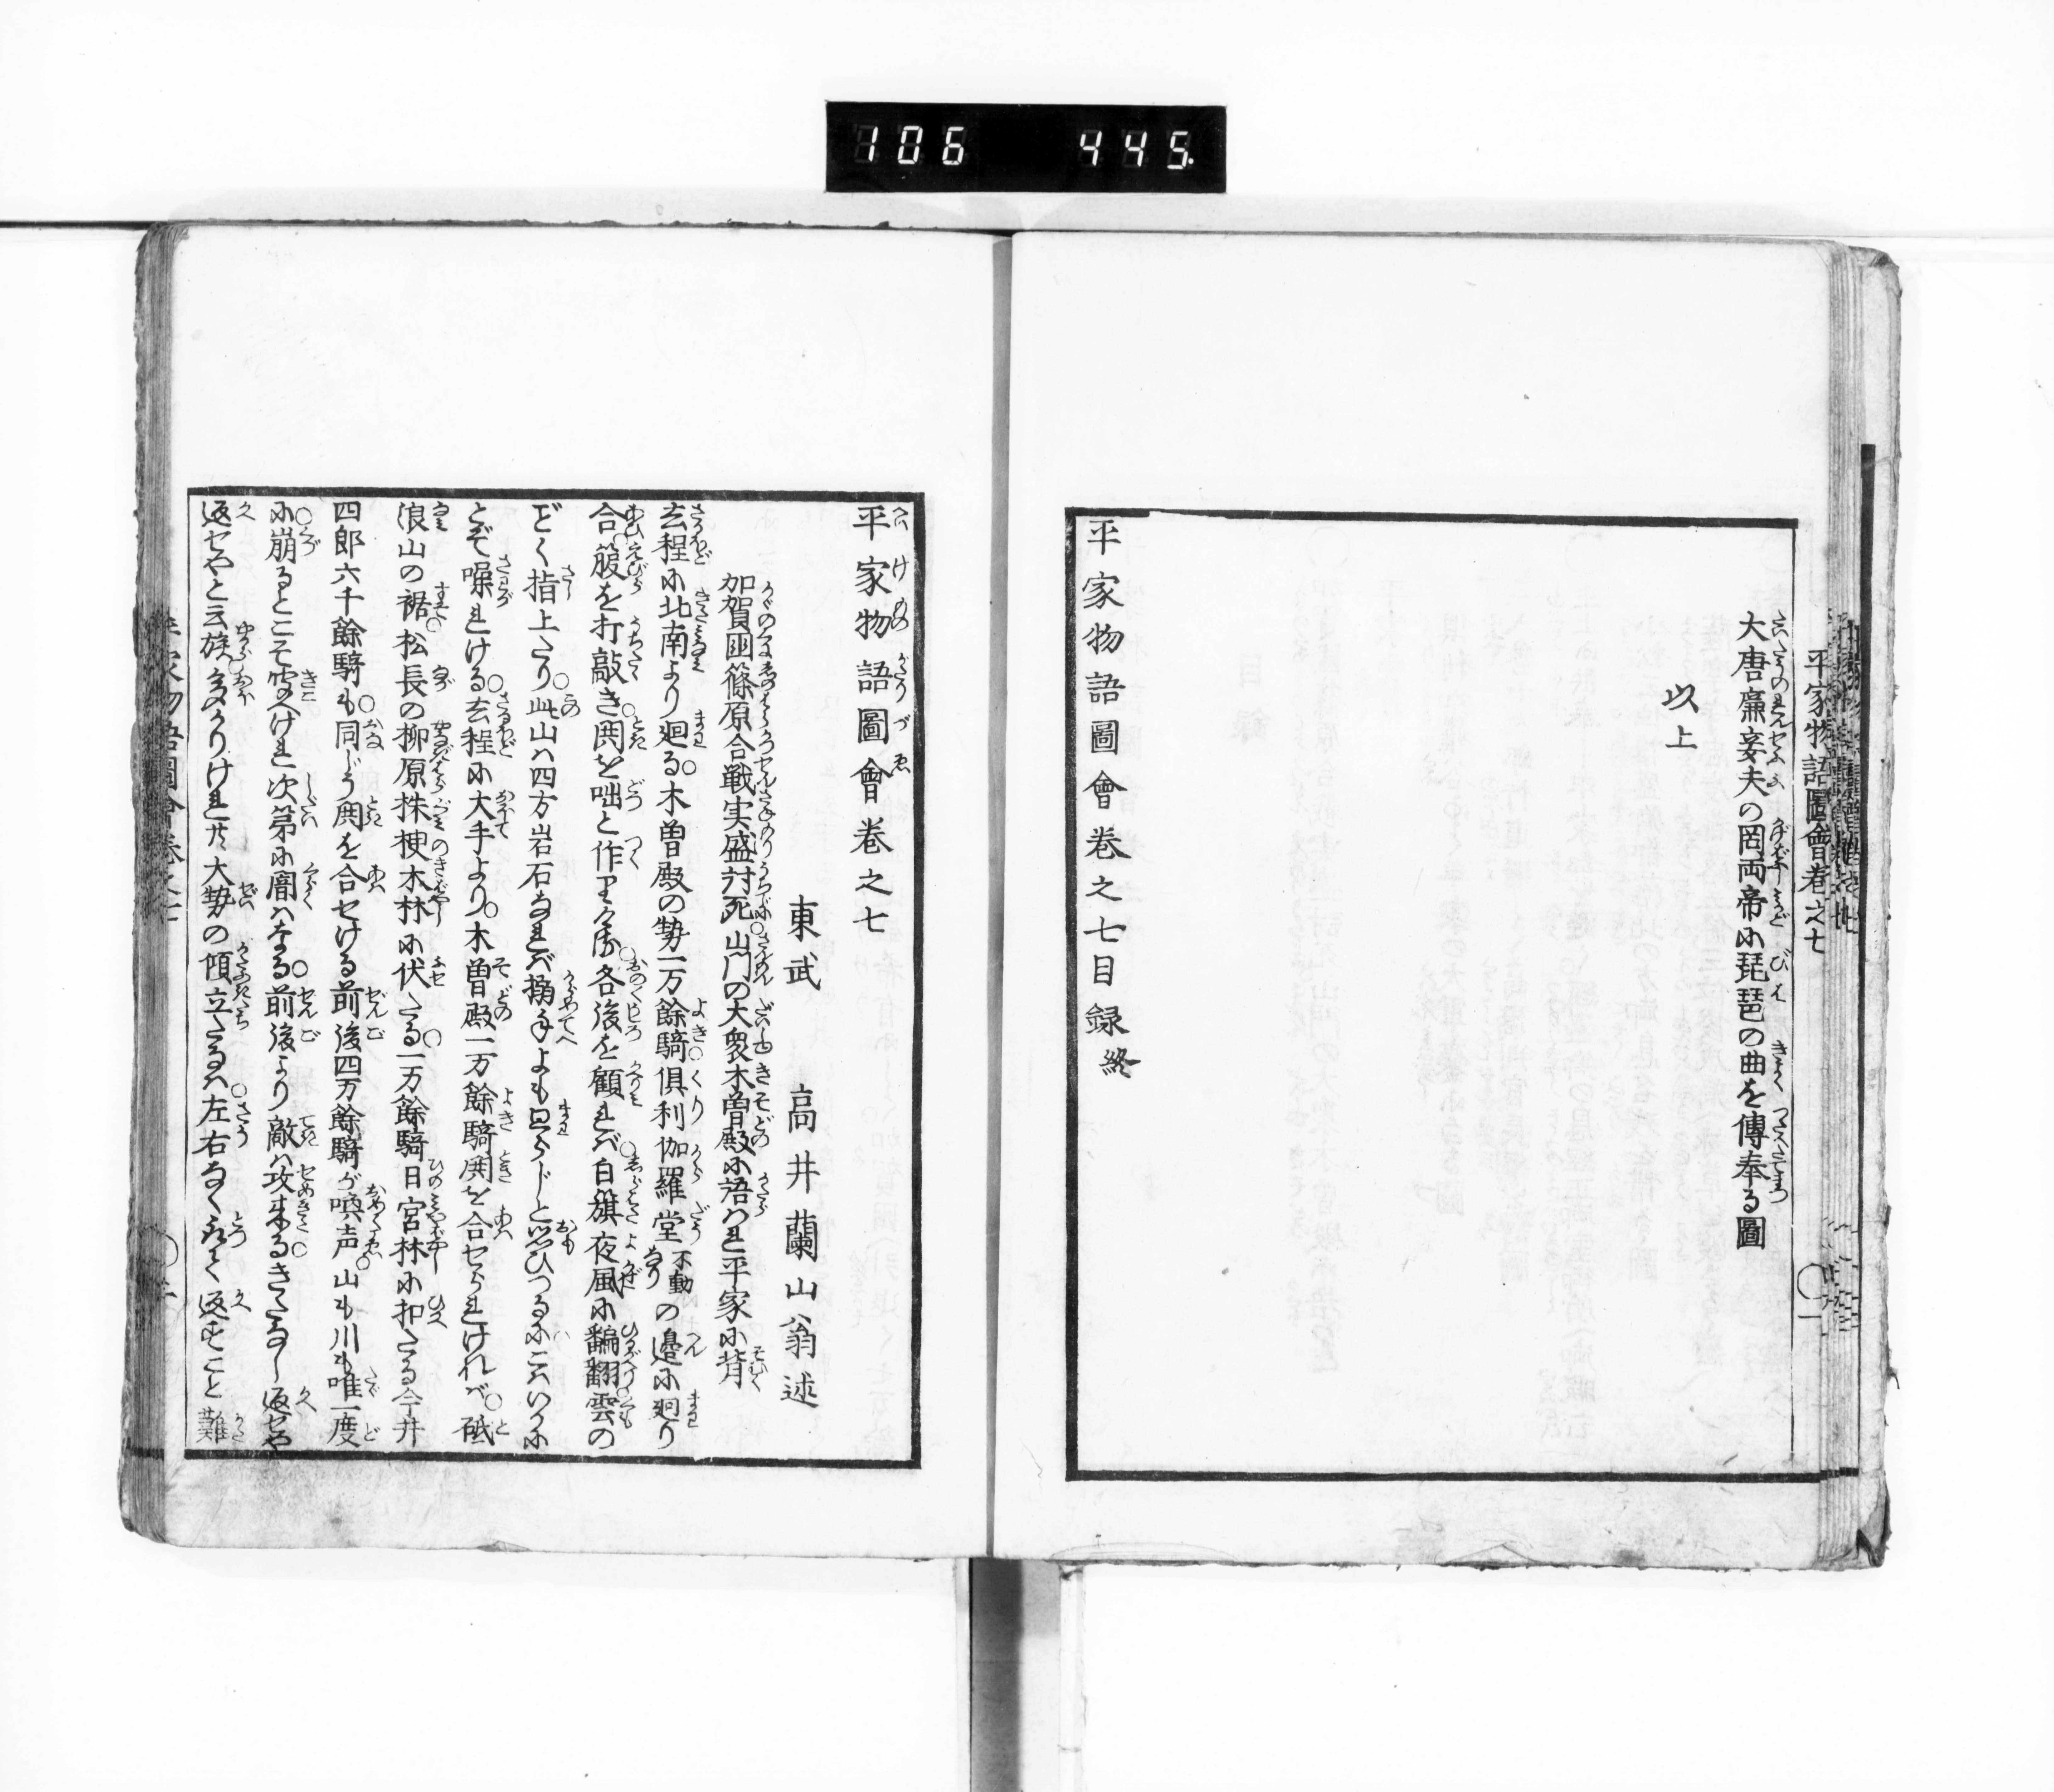 106 445
平家物語圖會巻之七
大唐廉妾夫の罔両帝に琵琶の曲を傳奉る圖
以上
平家物語圖會巻之七目録終
平家物語圖會巻之七
東武 高井蘭山翁述
加賀國篠原合戦実盛討死山門の大衆木曽殿に語はれ平家に背
玄程に北南より廻る○木曽殿の勢一万餘騎倶利伽羅堂不動なりの邉に廻り
合箙を打敲き○鬨を咄と作りける○各後を顧れバ○白旗夜風に翻翻○雲の
どく指上たり○此山ハ四方岩石なれバ搦手よもまはらじと思ひつるにこハいかに
とぞ噪れける○玄程に大手より○木曽殿一万餘騎鬨を合せられけれバ○砥
浪山の裾○松長の柳原捄梗木林に伏たる○一万餘騎日宮林に扣たる今井
四郎六千餘騎も○同じう鬨を合せける前後四万餘騎が喚声○山も川も唯一度
に○崩るとこそ聞へけれ次第に闇ハなる○前後より敵ハ攻来る○きたなし返せや
返せやと云族多かりけれ共大勢の傾立たるハ○左右なくとつて返すこと難
平家物語圖會巻之七